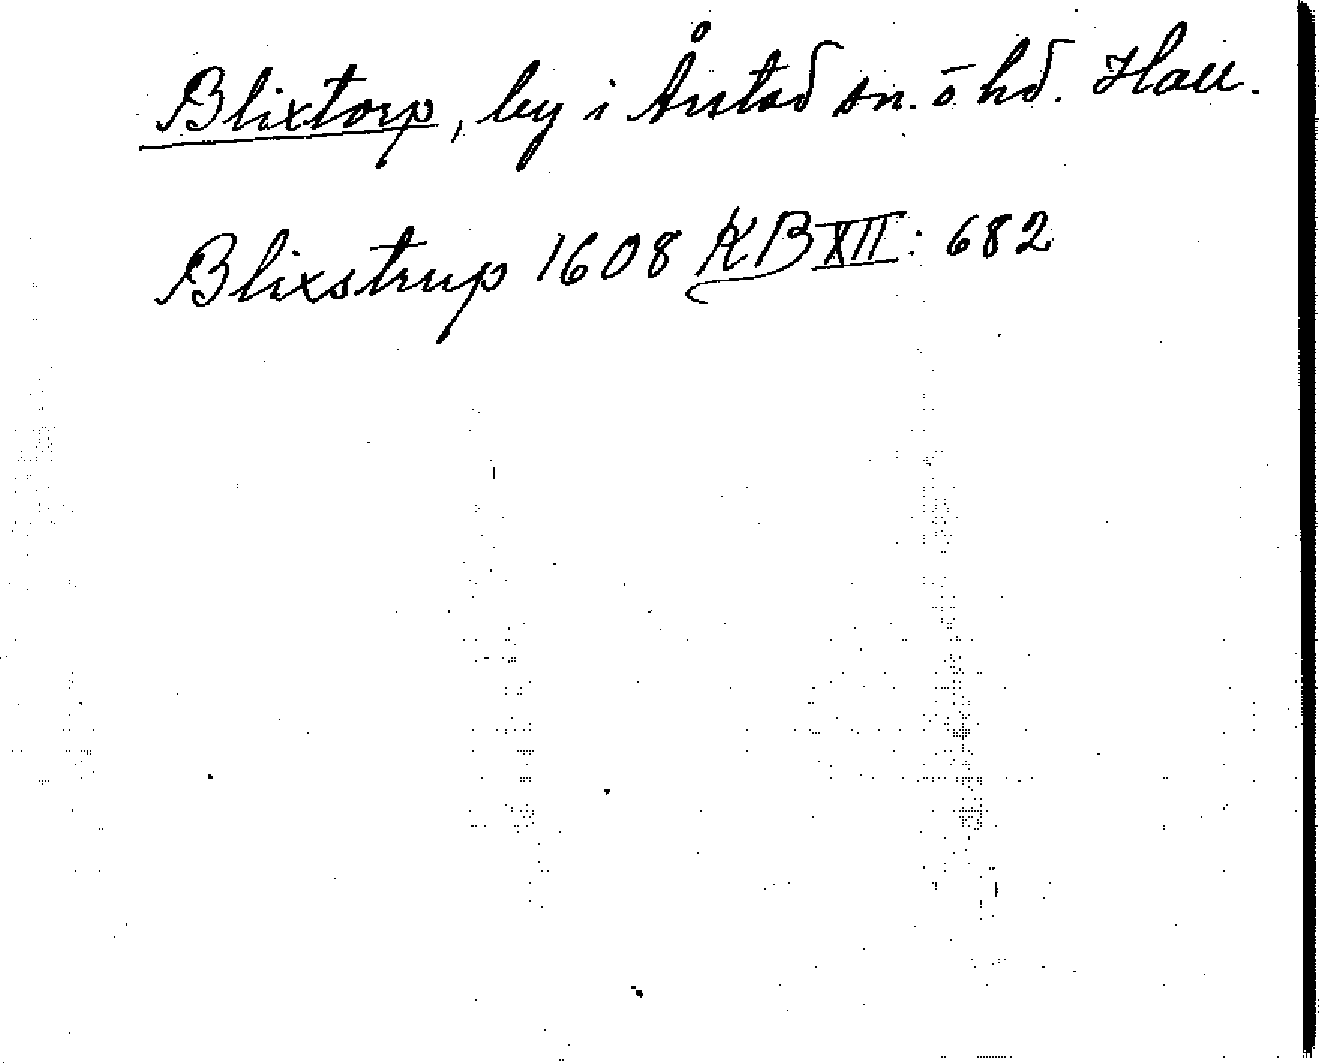 Blixtorp, by i Årstad sn. o hd. Hall.
Blixstrup 1608 KB XII: 682